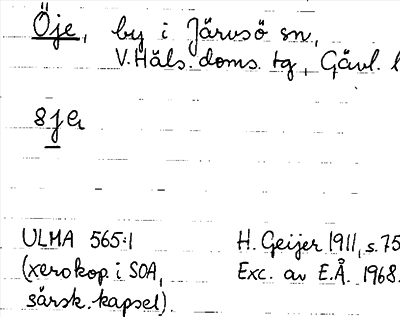 Öje, by i Järvsö sn,
V. Häls. doms. tg, Gävl. l
ULMA 565:1 H. Geijer 1911, s. 75
(xerokop. i SOA, Exc. av E.Å. 1968.
särsk. kapsel).